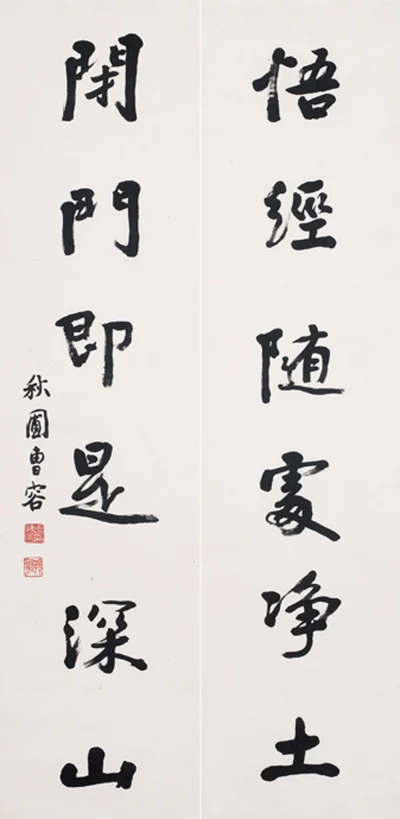 悟經随處净土
閉門即是深山
秋圃曹容